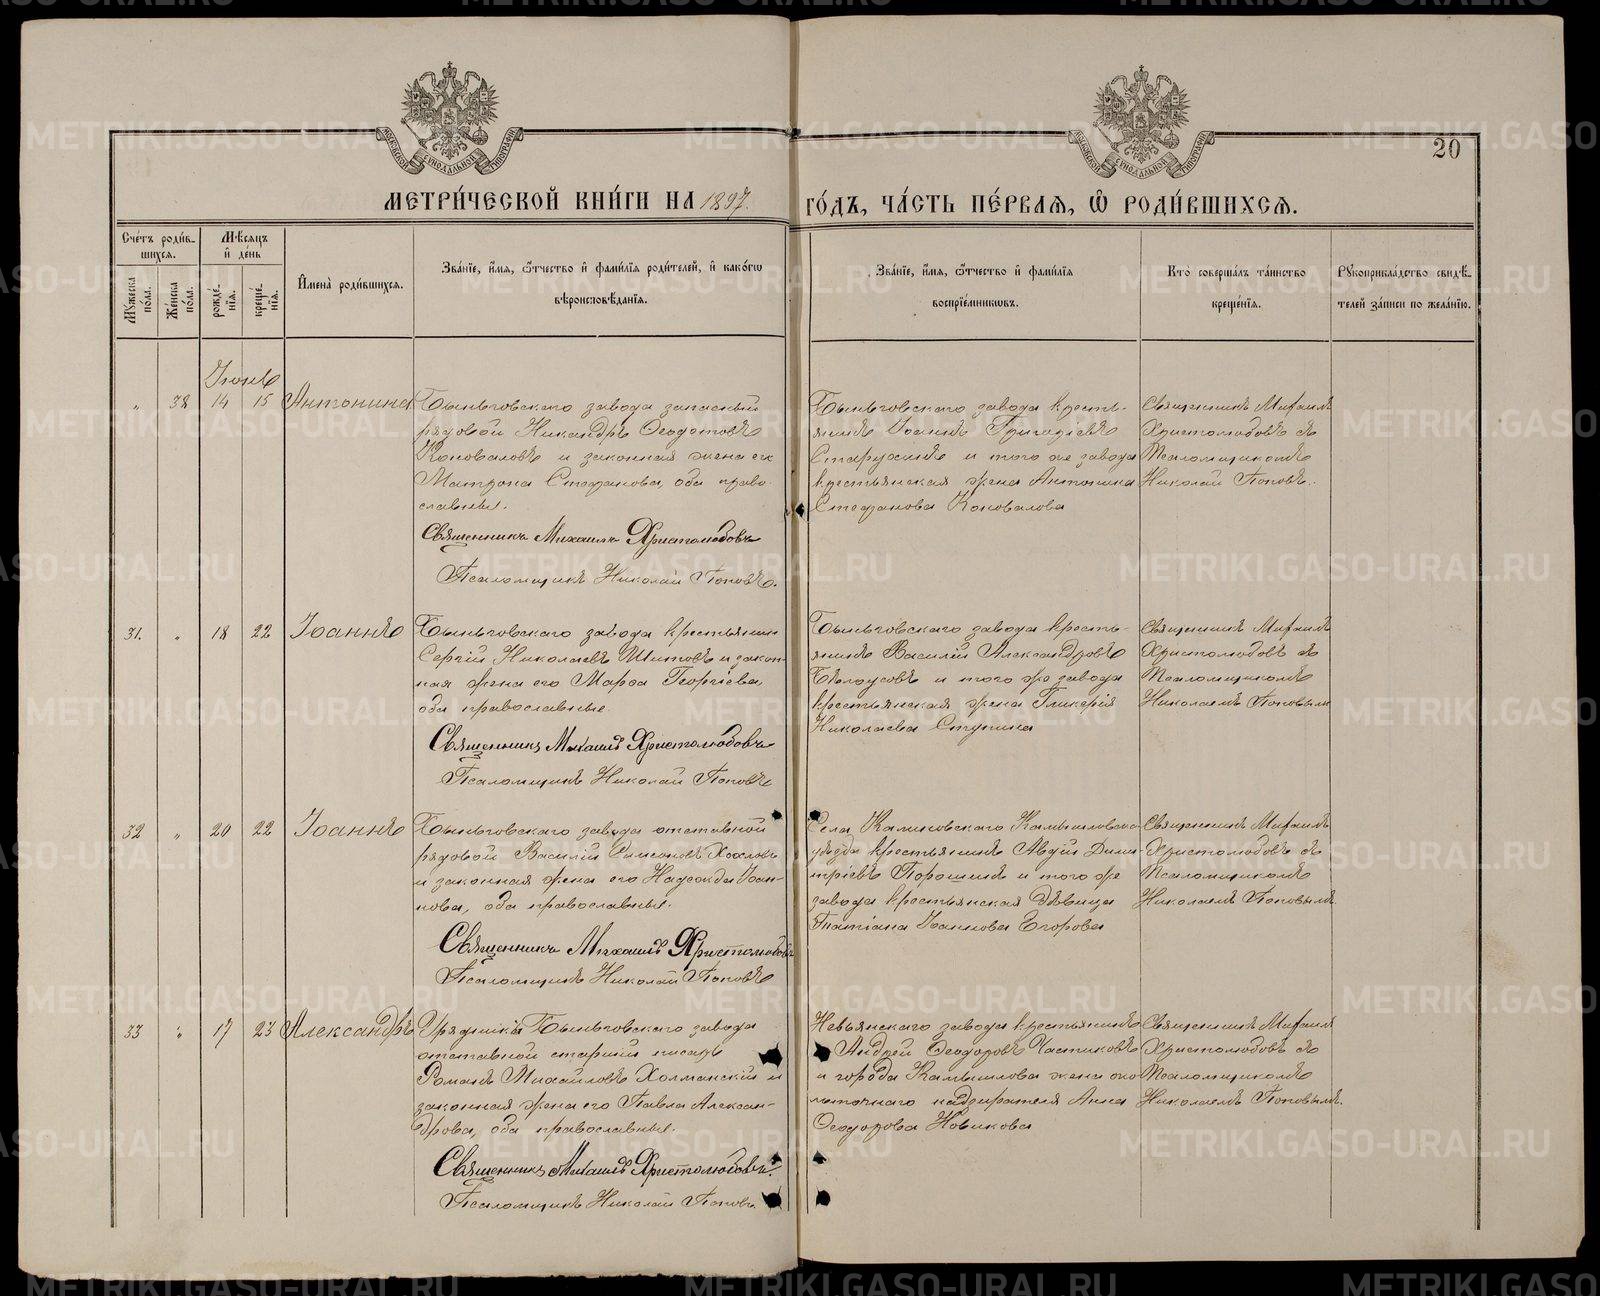 20
МЕТРИ́ЧЕСКОЙ КНИ́ГИ НА 1897. ГО́ДЪ, ЧА́СТЬ ПЕ́РВАЯ, Ѡ РОДИ́ВШИХСЯ.
Сче́тъ роди́в-
шихся.
Мꙋ́жеска по́ла.
Же́нска по́ла.
Мѣ́сяцъ и де́нь
рожде́-
нїя.
креще́-
нїя.
Имена̀ роди́вшихся.
Зва́нїе, и́мя, ѻ́тчество и фами́лїя роди́телей, и како́гѡ
вѣроисповѣ́данїя.
Зва́нїе, и́мя, ѻ́тчество и фами́лїя
воспрїе́мниковъ.
Кто̀ соверша́лъ та́инство
креще́нїя.
Рꙋкоприкла́дство свидѣ́-
телей за́писи по жела́нїю.
Іюнь
" 38 14 15 Антонина
Быньговскаго завода запасный
рядовой Никандръ Ѳеодотовъ
Коноваловъ и законная жена его
Матрона Стефанова, оба право-
славные.
Священникъ Михаилъ Христолюбовъ
Псаломщикъ Николай Поповъ.
Быньговскаго завода кресть-
янинъ Іоаннъ Григоріевъ
Старухинъ и того же завода
крестьянская жена Антонина
Стефанова Коновалова
Священникъ Михаилъ
Христолюбовъ съ
Псаломщикомъ
Николай Поповъ.
31. " 18 22 Іоаннъ
Быньговскаго завода крестьянин
Сергій Николаевъ Шитовъ и закон-
ная жена его Марѳа Георгіева,
оба православные.
Священникъ Михаилъ Христолюбовъ
Псаломщикъ Николай Поповъ
Быньговскаго завода кресть-
янинъ Василій Александровъ
Бѣлоусовъ и того же завода
крестьянская жена Гликерія
Николаева Ступина
Священникъ Михаилъ
Христолюбовъ съ
Псаломщикомъ
Николаемъ Поповымъ
32 " 20 22 Іоаннъ
Быньговскаго завода отставной
рядовой Василій Самсоновъ Хохловъ
и законная жена его Надежда Іоан-
нова, оба православные.
Священникъ Михаилъ Христолюбовъ
Псаломщикъ Николай Поповъ
Села Камышловскаго
уѣзда крестьянинъ Авдій Дими-
тріевъ Порошинъ и того же
завода крестьянская дѣвица
Татіана Іоаннова Егорова
Священникъ Михаилъ
Христолюбовъ съ
Псаломщикомъ
Николаемъ Поповымъ
33 " 17 23 Александръ
Урядника Быньговскаго завода
отставной старшій писарь
Романъ Михаиловъ Холманскій и
законная жена его Павла Алексан-
дрова, оба православные.
Священникъ Михаилъ Христолюбовъ.
Псаломщикъ Николай Поповъ
Невьянскаго завода крестьянинъ
Андрей Ѳеодоровъ Частиковъ
и города Камышлова жена око-
лоточнаго надзирателя Анна
Ѳеодорова Новикова
Священникъ Михаилъ
Христолюбовъ съ
Псаломщикомъ
Николаемъ Поповымъ.
METRIKI.GASO-URAL.RU